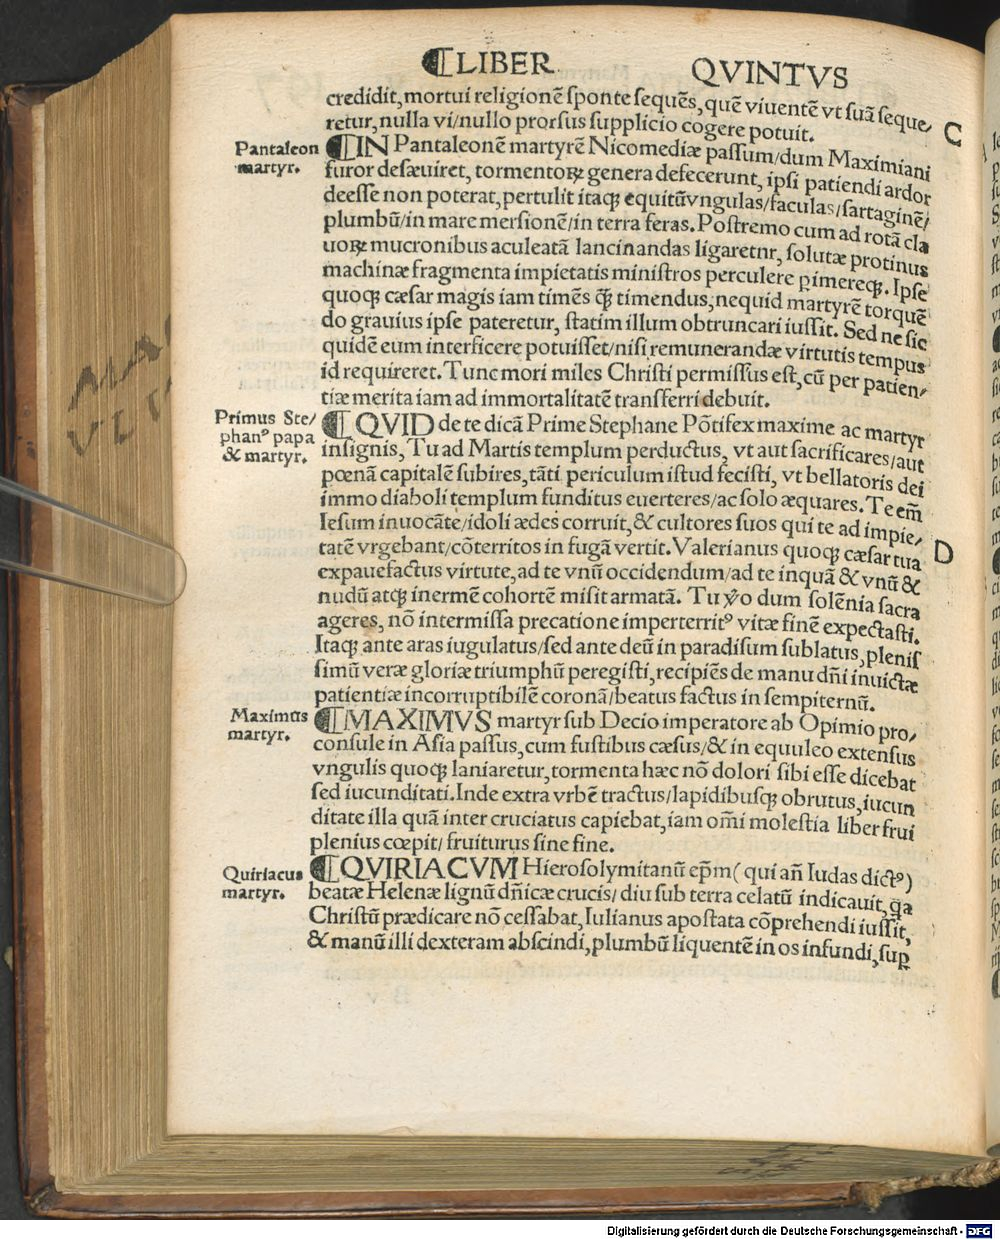 LIBER QVINTVS
credidit,mortui religionē ſponte ſequēs,quē viuentē vt ſuā ſeque/
retur,nulla vi/nullo prorſus ſupplicio cogere potuit.
C
Pantaleon
martyr.
IN Pantaleonē martyrē Nicomediæ paſſum/dum Maximiani
furor deſæuiret, tormentoꝝ genera defecerunt, ipſi patiendi ardor
deeſſe non poterat, pertulit itaqꝫ equitūvngulas/faculas/ſartaginē/
plumbū/in mare merſionē/in terra feras. Poſtremo cum ad rotā cla
uoꝝ mucronibus aculeatā lancinandas ligaretnr, ſolutæ protinus
machinæ fragmenta impietatis miniſtros perculere ꝑimereqꝫ. Ipſe
quoqꝫ cæſar magis iam timēs qꝫ̄ timendus,nequid martyrē torquē
do grauius ipſe pateretur, ſtatim illum obtruncari iuſſit. Sed ne ſic
quidē eum interficere potuiſſet/niſi remunerandæ virtutis tempus
id requireret. Tunc mori miles Chriſti permiſſus eſt, cū per patien/
tiæ merita iam ad immortalitatē transferri debuit.
Primus Ste/
phanꝰ papa
& martyr.
QVID de te dicā Prime Stephane Pōtifex maxime ac martyr
inſignis, Tu ad Martis templum perductus, vt aut ſacrificares/aut
pœnā capitalē ſubires,tāti periculum iſtud feciſti, vt bellatoris dei
immo diaboli templum funditus euerteres/ac ſolo æquares. Te em̄
Ieſum inuocāte/idoli ædes corruit,& cultores ſuos qui te ad impie/
tatē vrgebant/cōterritos in fugā vertit. Valerianus quoqꝫ cæſar tua
D
expauefactus virtute,ad te vnū occidendum/ad te inquā & vnū &
nudū atqꝫ inermē cohortē miſit armatā. Tu ꝟo dum ſolēnia ſacra
ageres, nō intermiſſa precatione imperterritꝰ vitæ finē expectaſti.
Itaqꝫ ante aras iugulatus/ſed ante deū in paradiſum ſublatus,pleniſ
ſimū veræ gloriæ triumphū peregiſti,recipiēs de manu dn̄i inuictæ
patientiæ incorruptibilē coronā/beatus factus in ſempiternū.
Maximus
martyr.
MAXIMVS martyr ſub Decio imperatore ab Opimio pro/
conſule in Aſia paſſus,cum fuſtibus cæſus/& in equuleo extenſus
vngulis quoqꝫ laniaretur,tormenta hæc nō dolori ſibi eſſe dicebat
ſed iucunditati. Inde extra vrbē tractus/lapidibuſqꝫ obrutus,iucun
ditate illa quā inter cruciatus capiebat,iam om̄i moleſtia liber frui
plenius cœpit/ fruiturus ſine fine.
Quiriacus
martyr.
QVIRIACVM Hieroſolymitanū ep̄m( qui an̄ Iudas dictꝰ)
beatæ Helenæ lignū dn̄icæ crucis/ diu ſub terra celatū indicauit, qa
Chriſtū prædicare nō ceſſabat, Iulianus apoſtata cōprehendi iuſſit,
& manū illi dexteram abſcindi,plumbū liquentē in os infundi,ſuꝑ
Digitalisierung gefördert durch die Deutsche Forschungsgemeinschaft - DFG